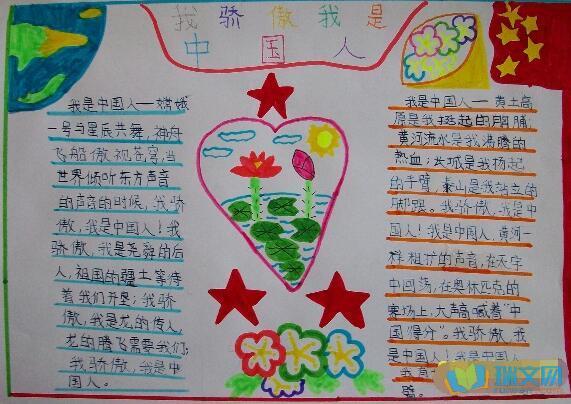 我骄傲我是
中国人
我是中国人——嫦娥
一号与星辰共舞,神舟
飞船傲视苍穹,当
世界倾听东方声音
的声音的时候,我骄
傲,我是中国人!我
骄傲,我是尧舜的后
人,祖国的疆土等待
着我们开垦;我骄
傲,我是龙的传人,
龙的腾飞需要我们;
我骄傲,我是中
国人。
我是中国人——黄土高
原是我挺起的胸脯,
黄河流水是我沸腾的
热血;长城是我扬起
的手臂,泰山是我站立的
脚跟。我骄傲,我是中
国人!我是中国人,黄河一
样粗犷的声音,在天宇
中回荡,在奥林匹克的
赛场上,大声喊着"中
国"得分"。我骄傲,我
是中国人!我是中国人
我
瑞文网
ruiwen.com